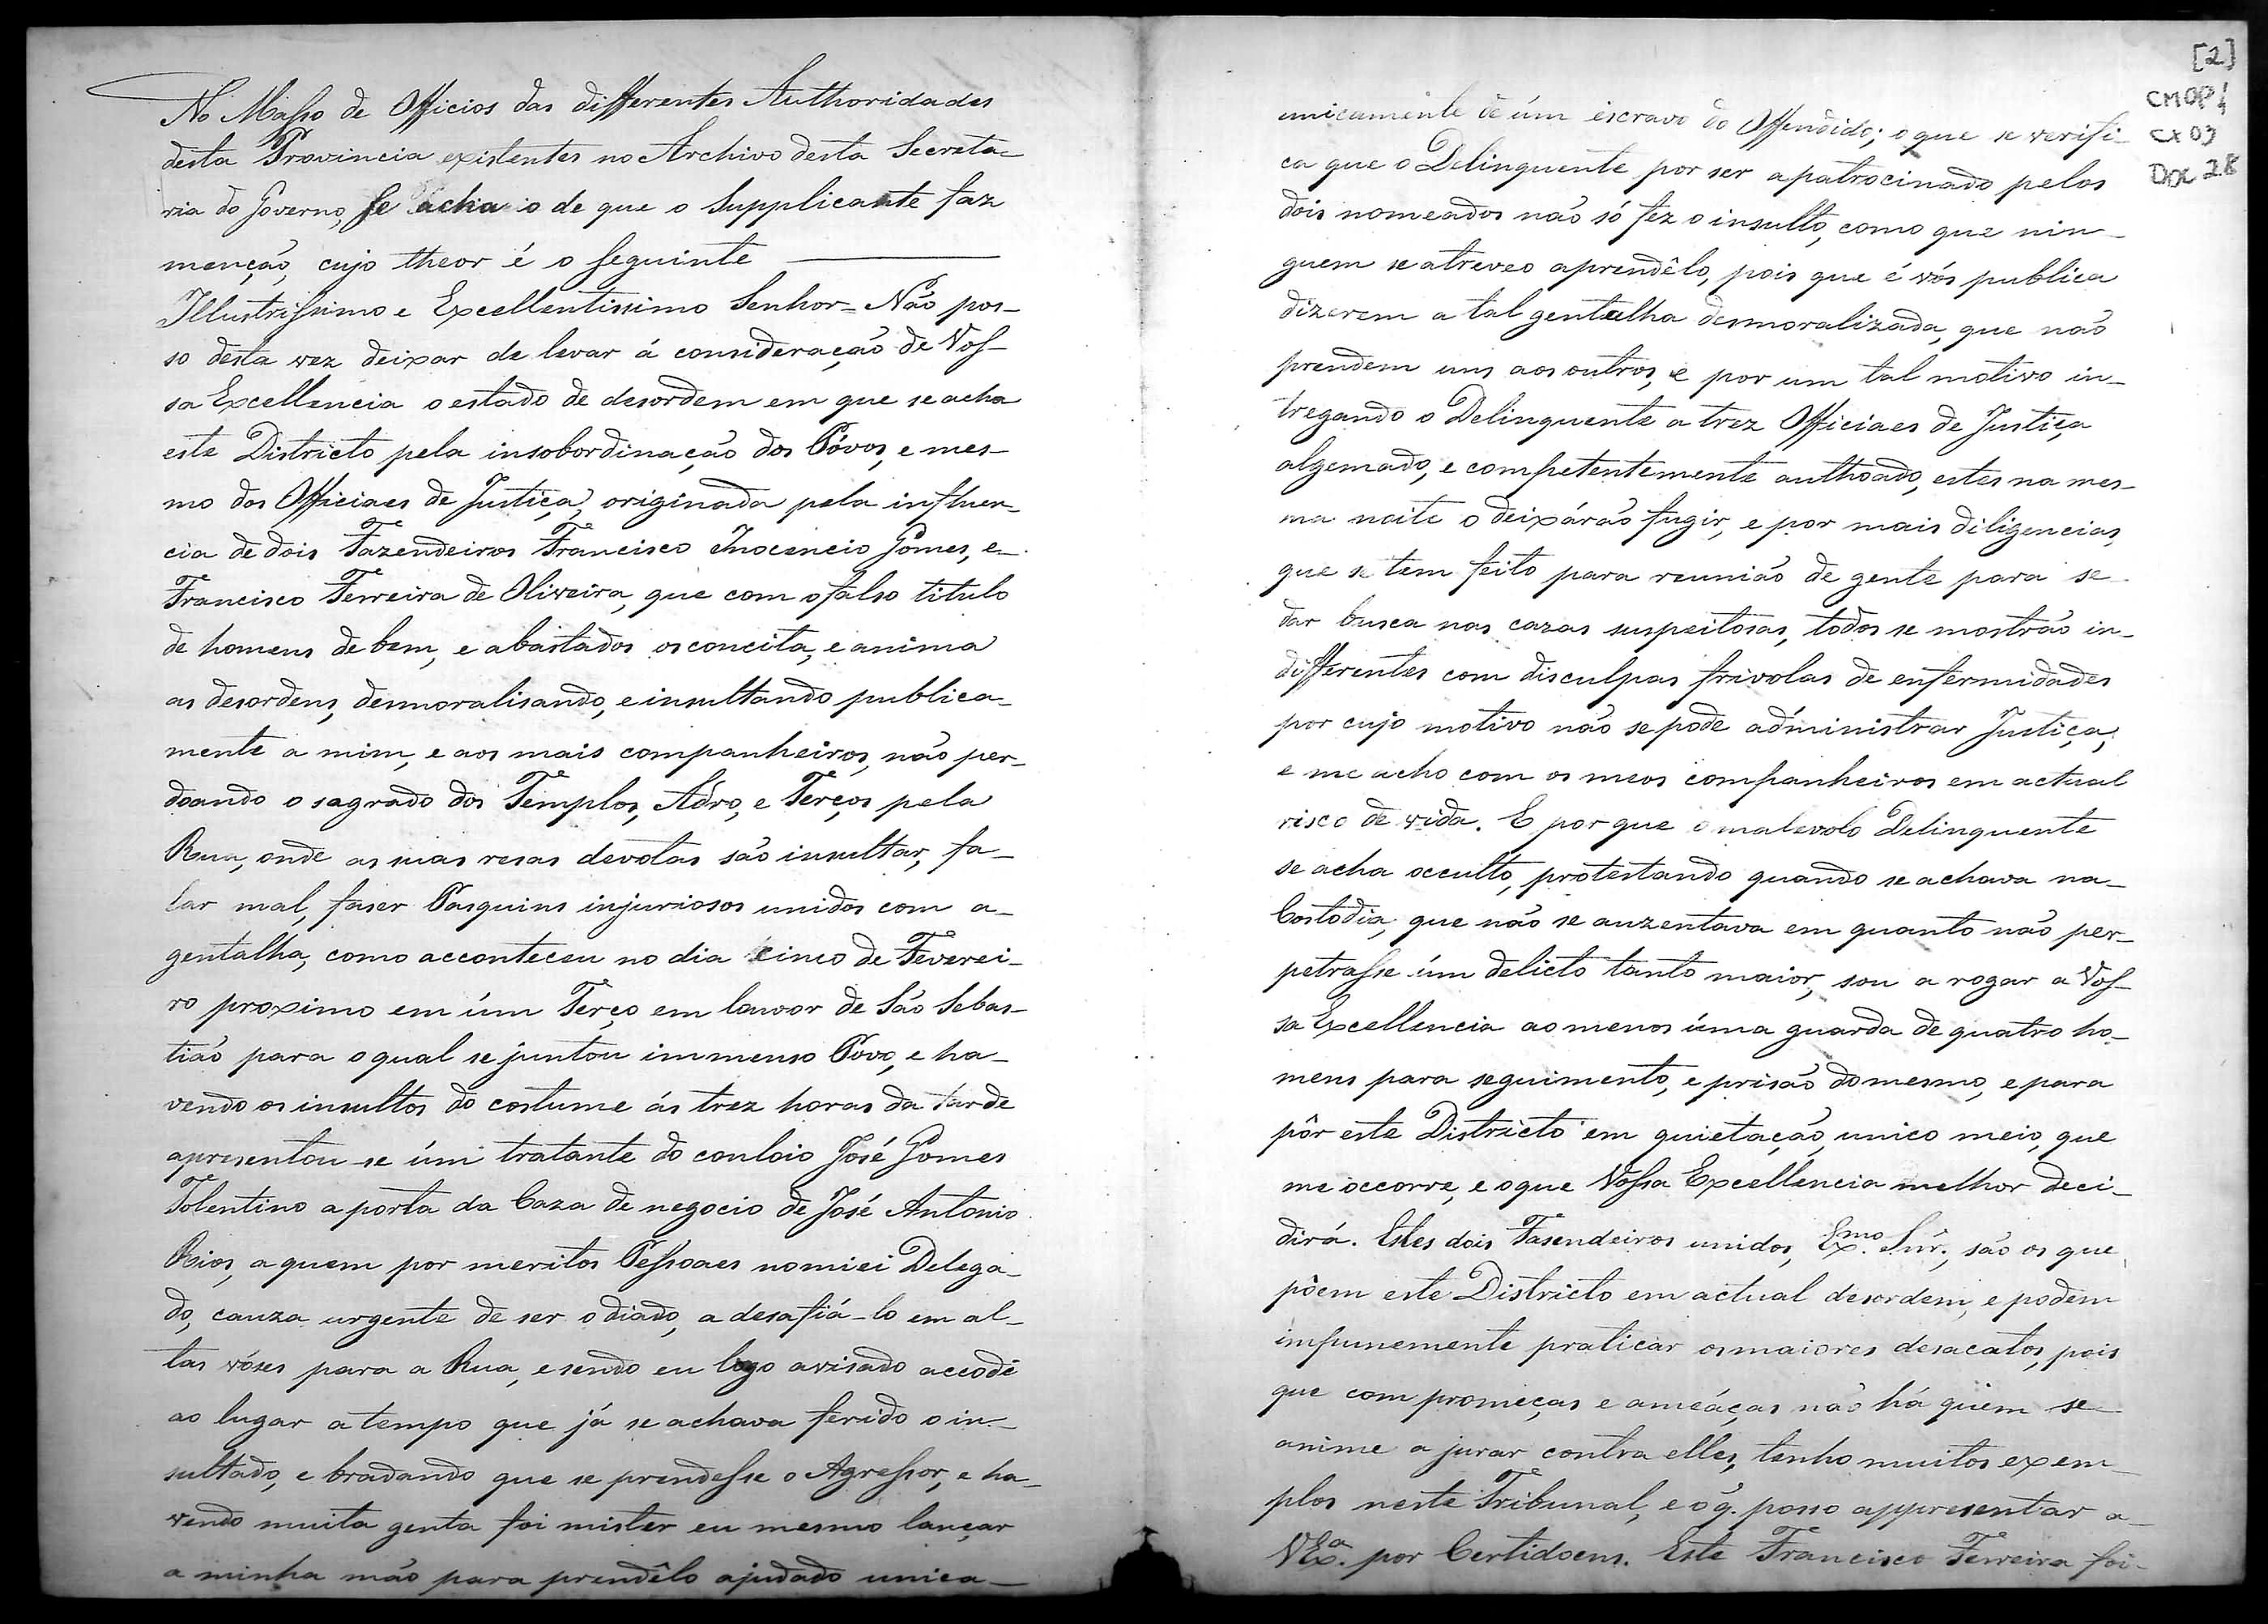 No Masso de Officios das differentes Authoridades
desta Provincia existentes no Archivo desta Secreta-
ria do Governo, se acha o de que o Supplicante faz
menção, cujo theor é o seguinte
Illustrissimo e Excellentissimo Senhor = Não pos-
so desta vez deixar de levar á consideração de Vos-
sa Excellencia o estado de desordem em que se acha
este Districto pela insobordinação dos Póvos, e mes-
mo dos Officiaes de Justiça, originada pela influen-
cia de dois Fazendeiros Francisco Inocencio Gomes, e
Francisco Ferreira de Oliveira, que com o falso titulo
de homens de bem, e abastados os concita, e anima
as desordens, desmoralisando, e insultando publica-
mente a mim, e aos mais companheiros, não per-
doando o sagrado dos Templos, Adro, e Terços pela
Rua, onde as suas resas devotas são insultar, fa-
lar mal, faser Pasquins injuriosos unidos com a-
gentalha, como acconteceu no dia cinco de Feverei-
ro proximo em úm Terço em lauvor de São Sebas-
tião para o qual se juntou immenso Povo, e ha-
vendo os insultos do costume ás trez horas da tarde
apresentou-se úm tratante do conloio José Gomes
Tolentino a porta da Caza de negocio de José Antonio
Rios, a quem por meritos Pessoaes nomiei Delega-
do, cauza urgente de ser odiado, a desafiá-lo em al-
tas vóses para a Rua, e sendo eu logo avisado accodi
ao lugar a tempo que já se achava ferido o in-
sultado, e bradando que se prendesse o Agressor, e ha-
vendo muita genta foi mister eu mesmo lançar
a minha mão para prendêlo ajudado unica-
[2]
CMOP/
CX 03
DOC 28
unicamente de úm escravo do Offendido; o que se verifi-
ca que o Delinquente por ser apatrocinado pelos
dois nomeados não só fez o insulto, como que nin-
guem se atreveo aprendêlo, pois que é vós publica
dizerem a tal gentalha desmoralizada, que não
prendem uns aos outros, e por um tal motivo in-
tregando o Delinquente a trez Officiaes de Justiça
algemado, e competentemente authoado, estes na mes-
ma noite o deixárão fugir, e por mais diligencias,
que se tem feito para reunião de gente para se
dar busca nas cazas suspeitosas, todos se mostrão in-
differentes com disculpas frivolas de enfermidades
por cujo motivo não se pode administrar Justiça,
e me acho com os meos companheiros em actual
risco de vida. E por que o malevolo Delinquente
se acha occulto, protestando quando se achava na-
Costodia, que não se auzentava em quanto não per-
petrasse úm delicto tanto maior, sou a rogar a Vos-
sa Excellencia ao menos úma guarda de quatro ho-
mens para seguimento, e prisão do mesmo, e para
pôr este Districto em quietação, unico meio, que
me occorre, e o que Vossa Excellencia melhor deci-
dirá. Estes dois Fasendeiros unidos, Exmo. Snr., são os que
pôem este Districto em actual desordem, e podem
impunemente praticar os maiores desacatos, pois
que com promeças e ameáças não há quem se
anime a jurar contra elles, tenho muitos exem-
plos neste Tribunal, e o q. posso appresentar a-
VExa. por Certidoens. Este Francisco Ferreira foi-